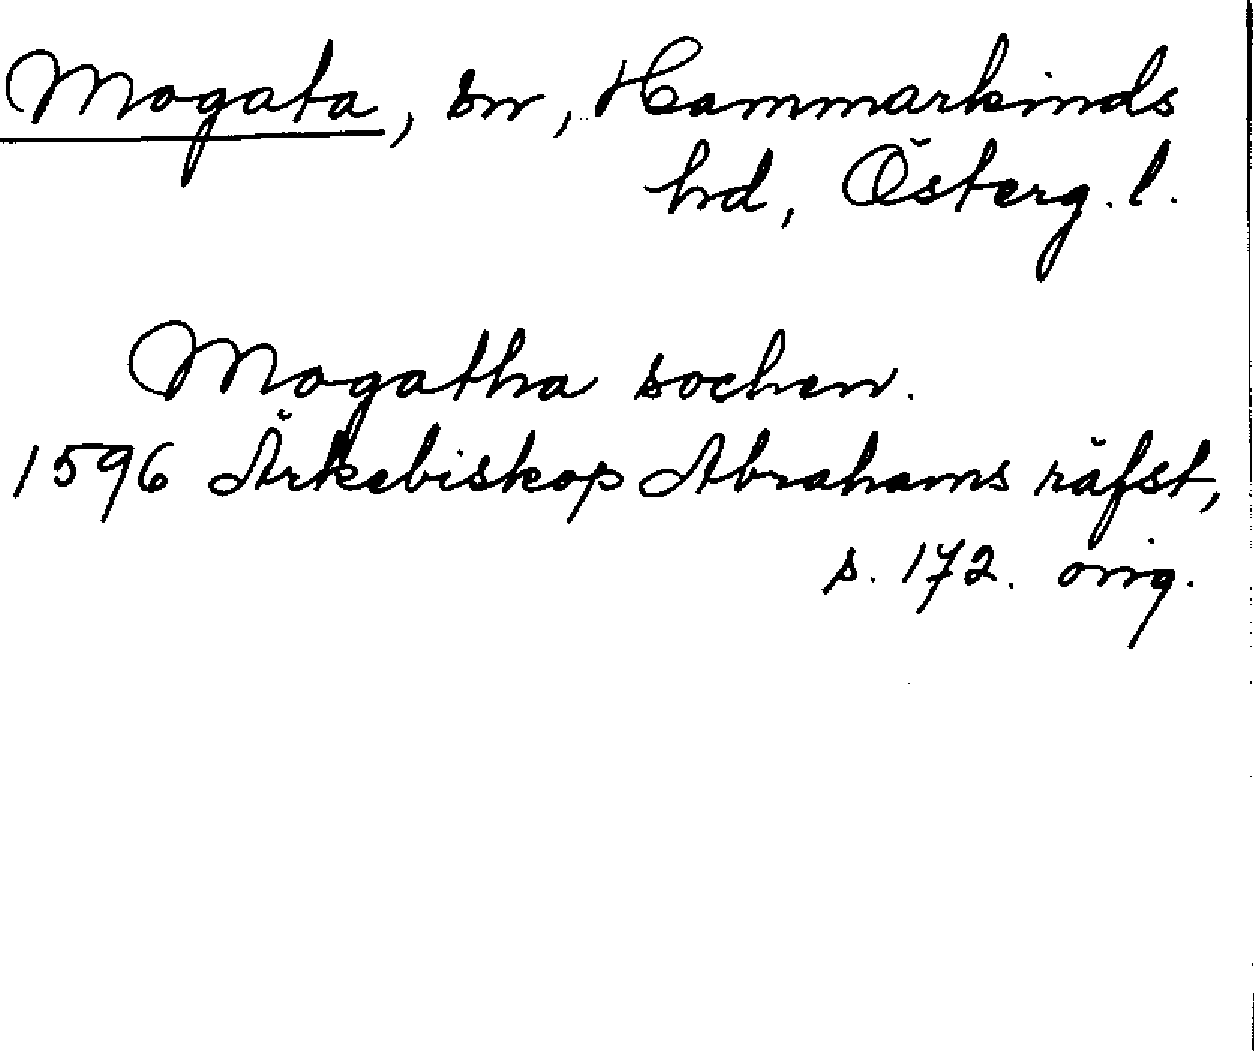 Mogata, sn, Hammarkinds
hd, Österg.l.
Mogatha sochen.
1596 Ärkebiskop Abrahams räfst,
s. 172. orig.